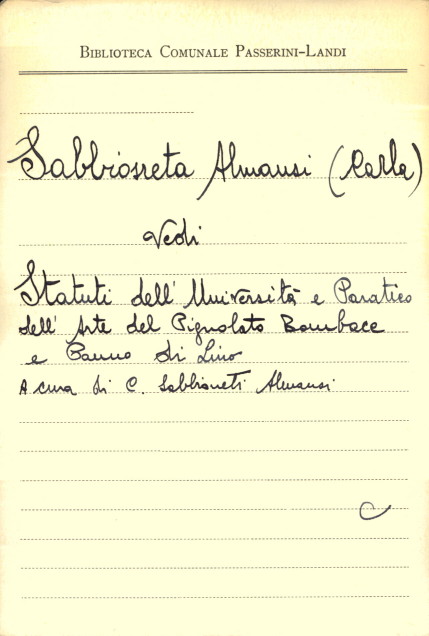 BIBLIOTECA COMUNALE PASSERINI-LANDI
Sabbioneta Almansi (Carla)
Vedi
Statuti dell' Università e Paratico
dell' Arte del Pignolato Bombace
e Panno di Lino
A cura di C. Sabbioneti Almansi
C